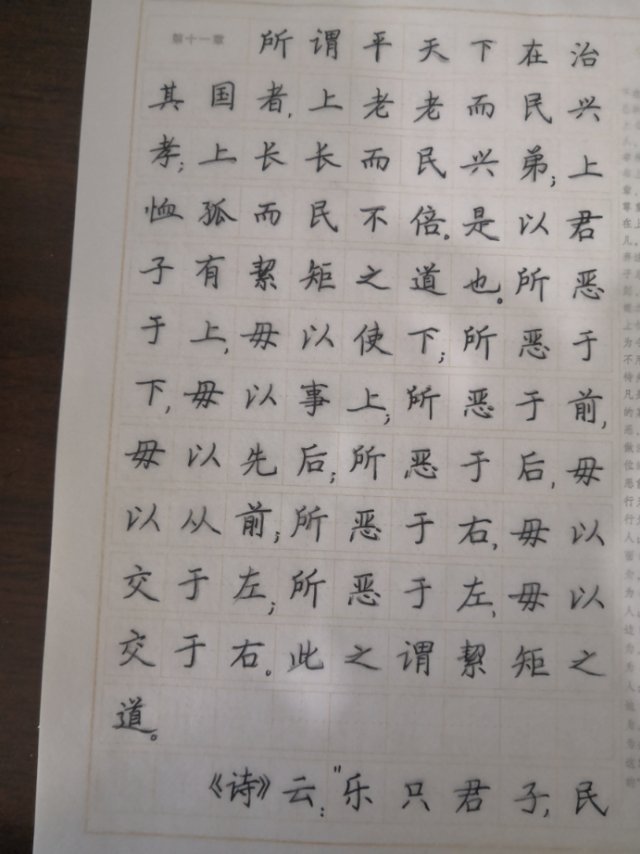 第十一章 所谓平天下在治
其国者,上老老而民兴
孝;上长长而民兴弟;上
恤孤而民不倍。是以君
子有絜矩之道也。所恶
于上,毋以使下;所恶于
下,毋以事上;所恶于前,
毋以先后;所恶于后,毋
以从前;所恶于右,毋以
交于左;所恶于左,毋以
交于右。此之谓絜矩之
道。
《诗》云:"乐只君子,民